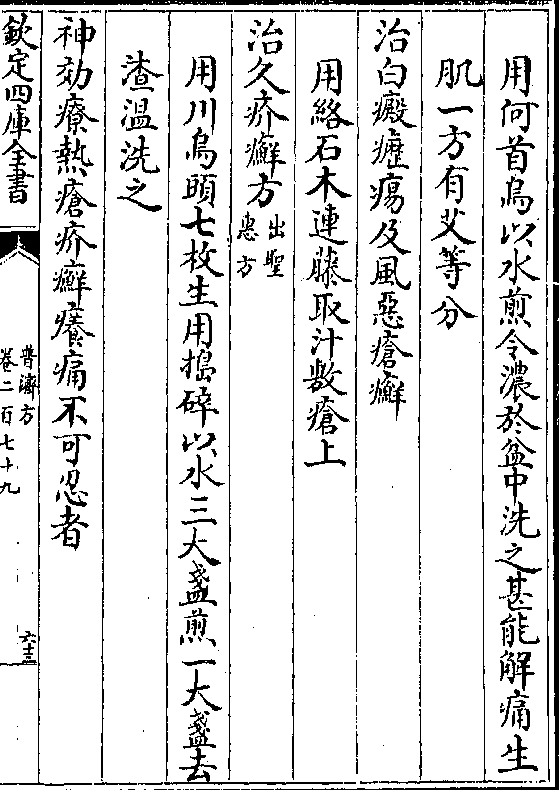 用何首烏以水煎令濃於盆中洗之甚能解痛生
肌一方有艾等分
治白癜癧瘍及風惡瘡癬
用絡石木連藤取汁敷瘡上
治久疥癬方出聖惠方
用川烏頭七枚生用搗碎以水三大盞煎一大盞去
渣温洗之
神効療熱瘡疥癬癢痛不可忍者
欽定四庫全書
普濟方
卷二百七十九
六十三